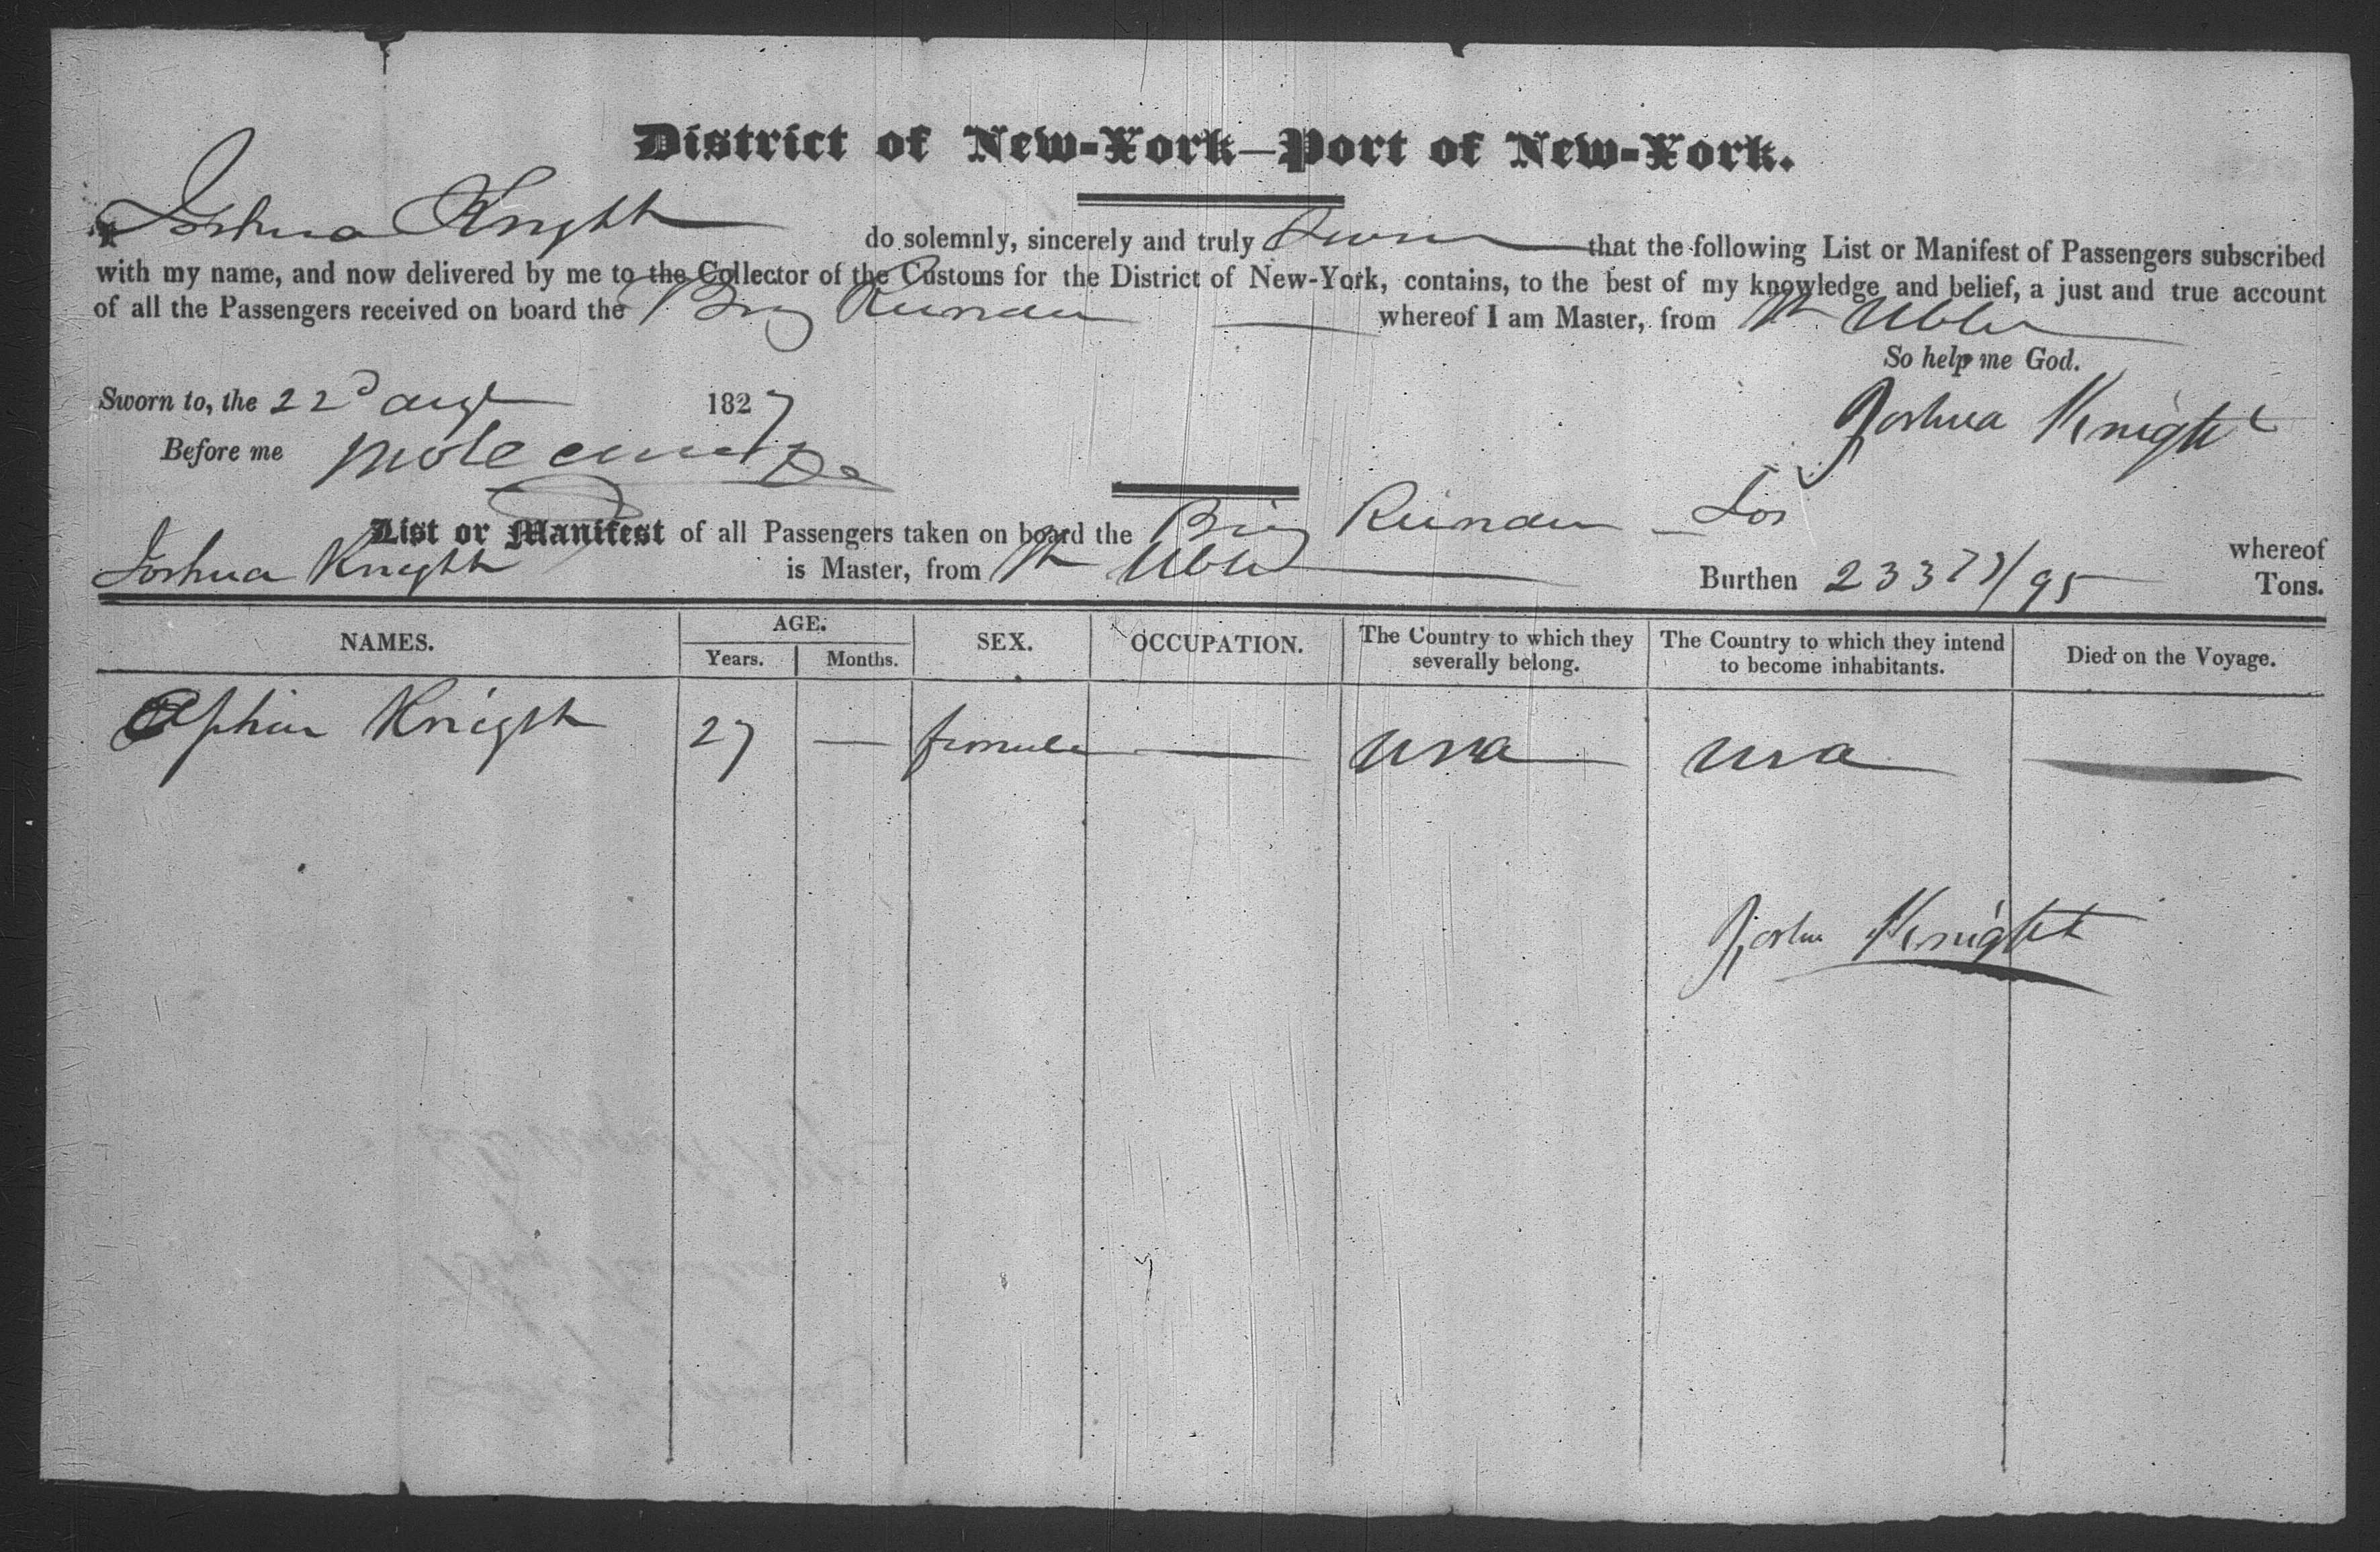 District of New-York—Port of New-York.
I Joshua Knight do solemnly, sincerely and truly Swear that the following List or Manifest of Passengers subscribed
with my name, and now delivered by me to the Collector of the Customs for the District of New-York, contains, to the best of my knowledge and belief, a just and true account
of all the Passengers received on board the Brig whereof I am Master, from St Ubes
So help me God.
Sworn to, the 22d augt 1827
Joshua Knight
Before me
List or Manifest of all Passengers taken on board the Brig whereof
Joshua Knight is Master, from St Ubes Burthen 233 73/95 Tons.
NAMES. AGE. SEX. OCCUPATION. The Country to which they severally belong. The Country to which they intend to become inhabitants. Died on the Voyage.
Years. Months.
Knight 27 — female — usa usa —
Joshua Knight